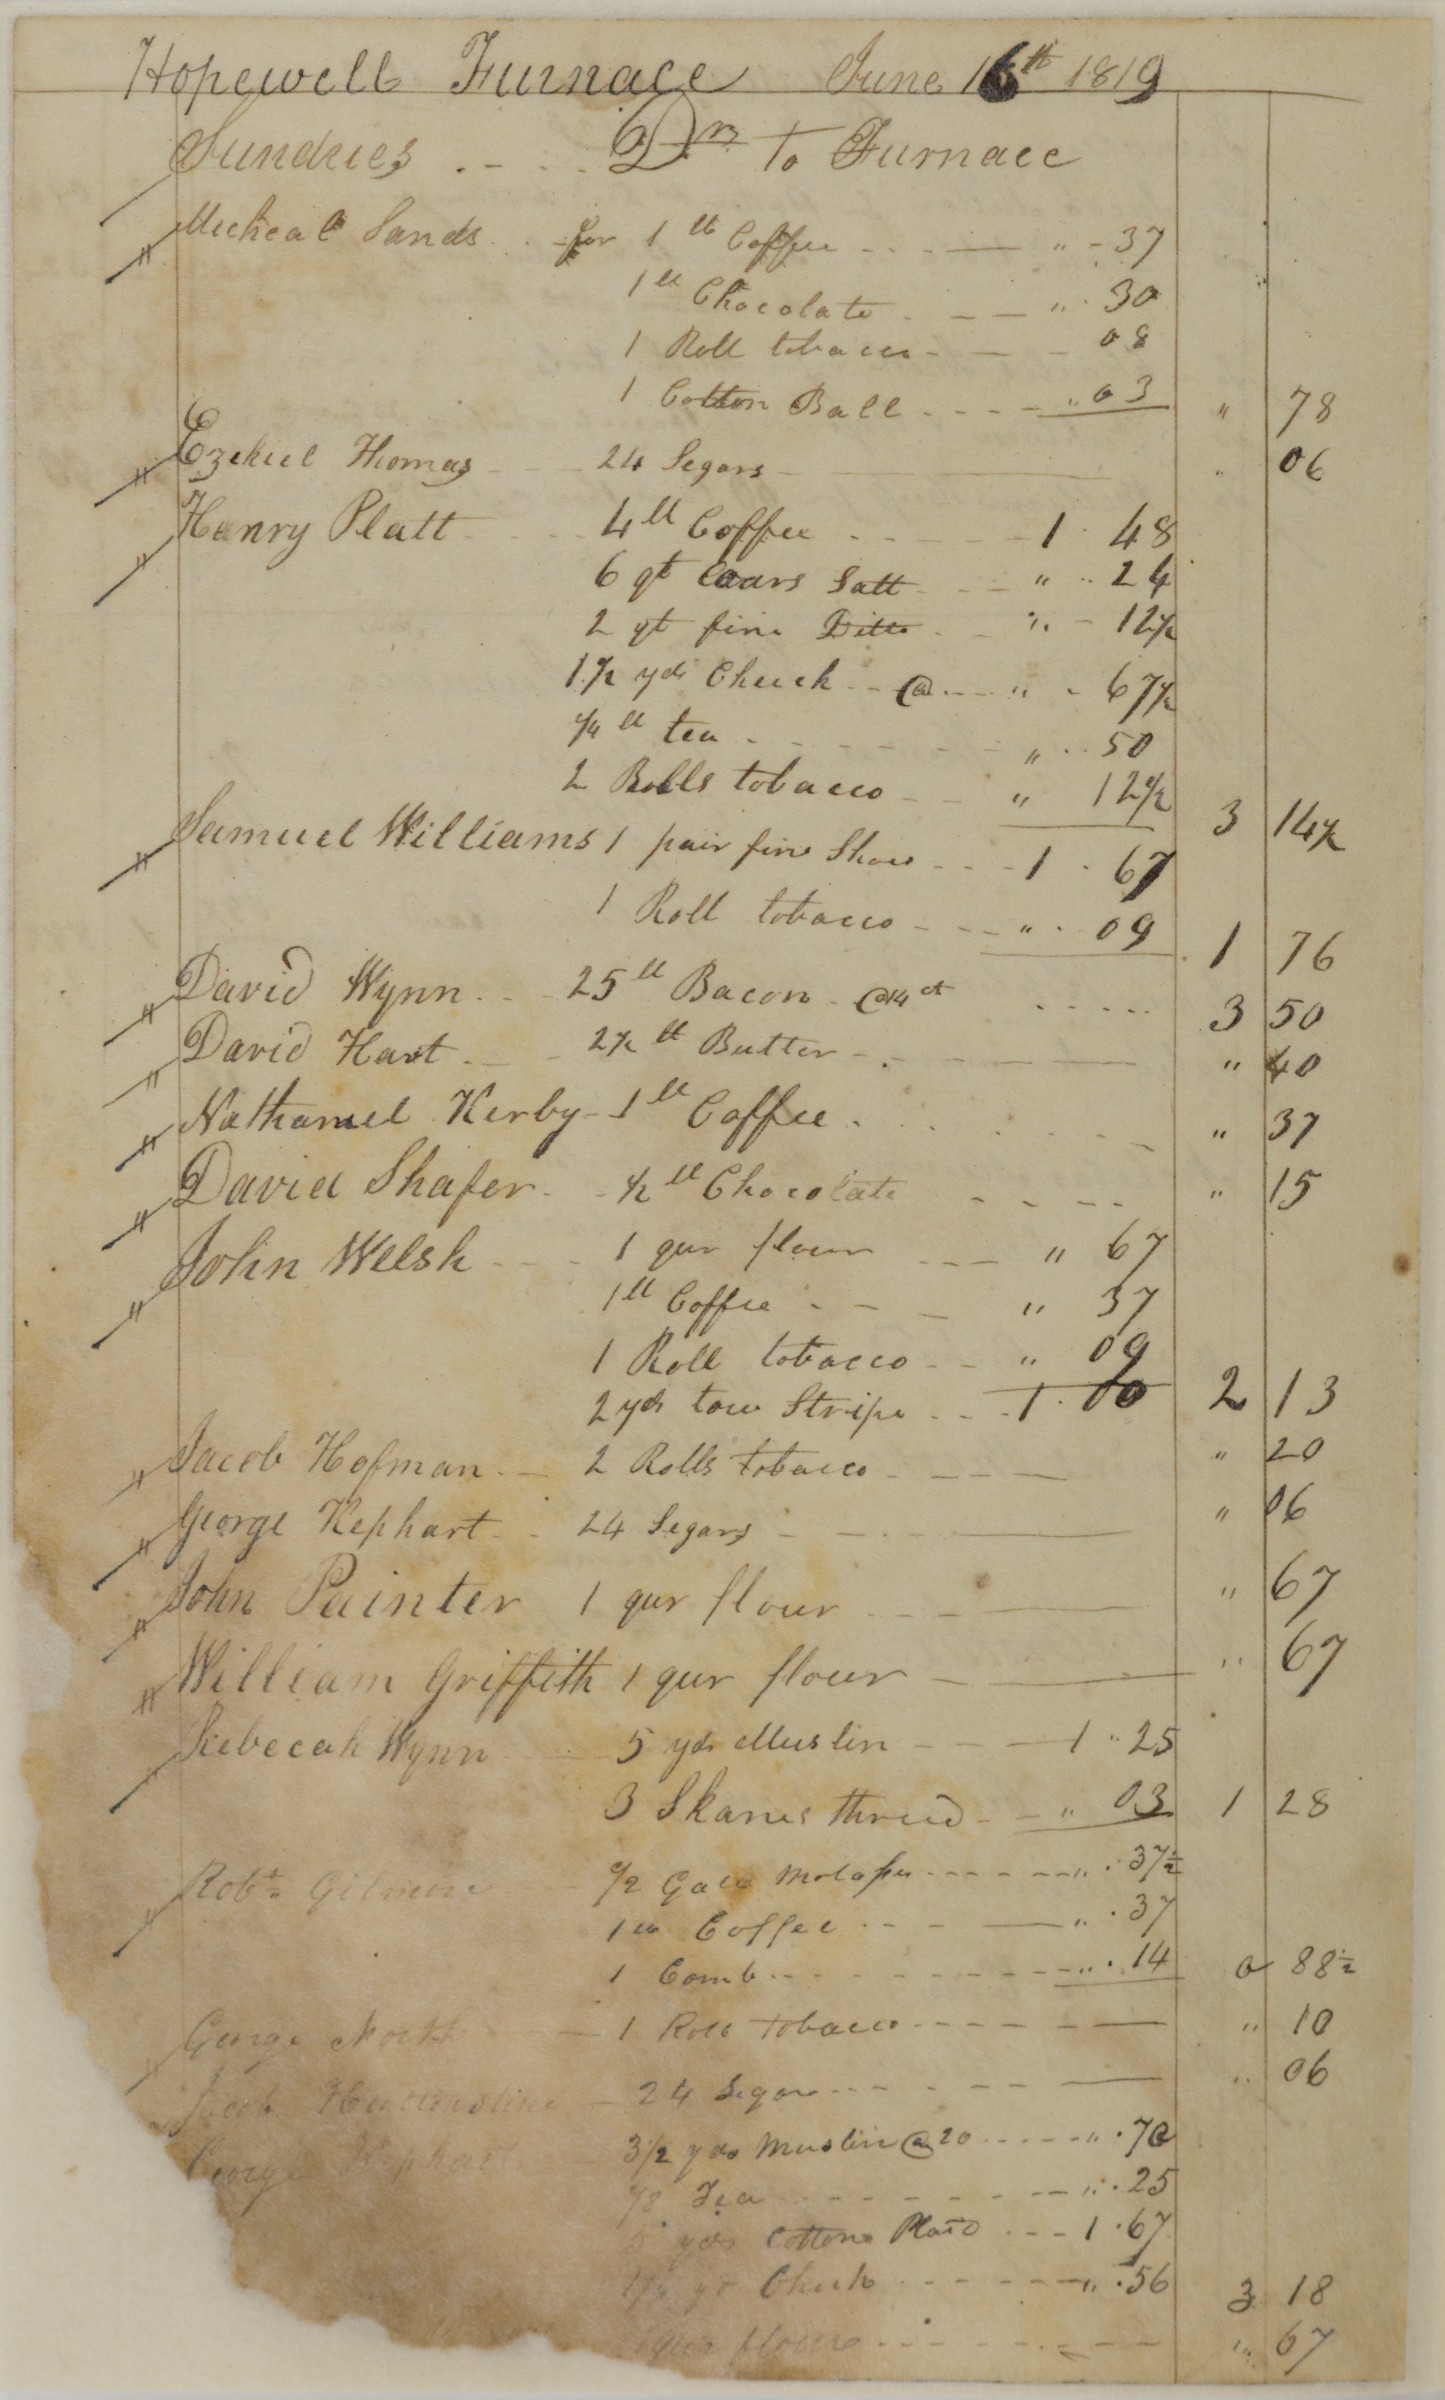 Hopewell Furnace June 16th 1819
Sundries Drs To Furnace
Micheal Sands for 1 lb Coffee " 37
1 lb Chocolate " 30
1 Roll tobacco 08
1 Cotton Ball " 03 " 78
Ezekiel Thomas 24 Segars " 06
Hanry Platt 4 lb Coffee 1 48
6 qt Coars Salt " 24
2 qt fine Ditto " 12½
1½ yds Check @ " 67½
¼ lb tea " 50
2 Rolls tobacco " 12½ 3 14½
Samuel Williams 1 pair fine Shoes 1 67
1 Roll tobacco " 09 1 76
David Wynn 25 lb Bacon @ 14 ct 3 50
David Hart 2½ lb Butter " 40
Nathaniel Kerby 1 lb Coffee " 37
David Shafer ½ lb Chocolate " 15
John Welsh 1 qur flour " 67
1 lb Coffee " 37
1 Roll tobacco " 09
2 yds tow Stripe 1 00 2 13
Jacob Hofman 2 Rolls tobacco " 20
George Kephart 24 Segars " 06
John Painter 1 qur flour " 67
William Griffith 1 qur flour " 67
Rebecah Wynn 5 yds Muslin 1 25
3 Skanes thread " 03 1 28
Robt Gilmore ½ Gall Molasses " 37½
1 lb Coffee " 37
1 Comb " 14 0 88½
George North 1 Roll tobacco " 10
Jacob 24 Segars " 06
George Kephart 3½ yds Muslin @ 20 " 70
⅛ Tea " 25
5 yds Cotton Plaid 1 67
yd Check " 56 3 18
qur flour " 67